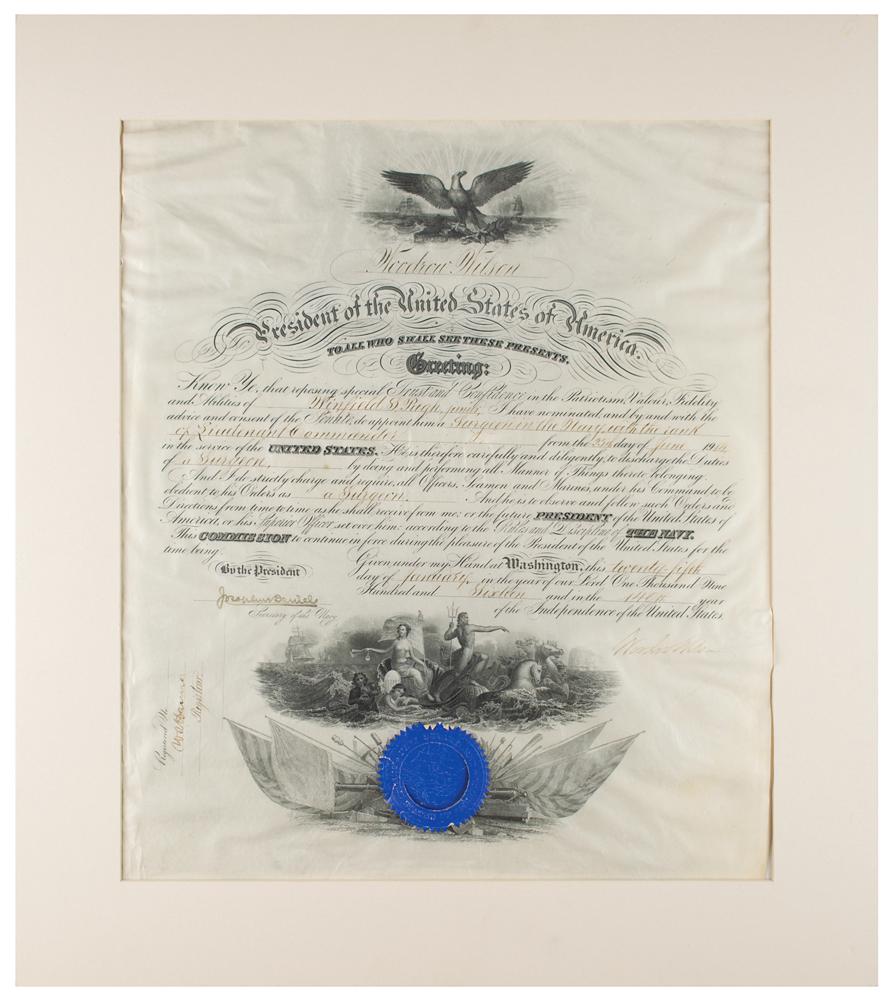 Woodrow Wilson
President of the United States of America.
TO ALL WHO SHALL SEE THESE PRESENTS,
Greeting:
Know Ye, that reposing special Trust and Confidence in the Patriotism, Valour, Fidelity
and Abilities of Winfield S Pugh, junior, I have nominated, and by and with the
advice and consent of the Senate, do appoint him a Surgeon in the Navy, with the rank
of Lieutenant Commander from the day of June 19
in the service of the UNITED STATES. He is therefore carefully and diligently, to discharge the Duties
of a Surgeon, by doing and performing all Manner of Things thereto belonging.
And I do strictly charge and require, all Officers, Seamen and Marines, under his Command to be
obedient to his Orders as a Surgeon. And he is to observe and follow such Orders and
Directions from time to time as he shall receive from me; or the future PRESIDENT of the United States of
America, or his Superior Officer set over him: according to the Rules and Discipline of THE NAVY.
This COMMISSION to continue in force during the pleasure of the President of the United States for the
time being.
Given under my Hand at Washington, this twenty fifth
By the President
day of January, in the year of our Lord One Thousand Nine
Hundred and Sixteen and in the 140th year
of the Independence of the United States.
Josephus Daniels
Secretary of the Navy
Woodrow Wilson
Registered No
Registrar